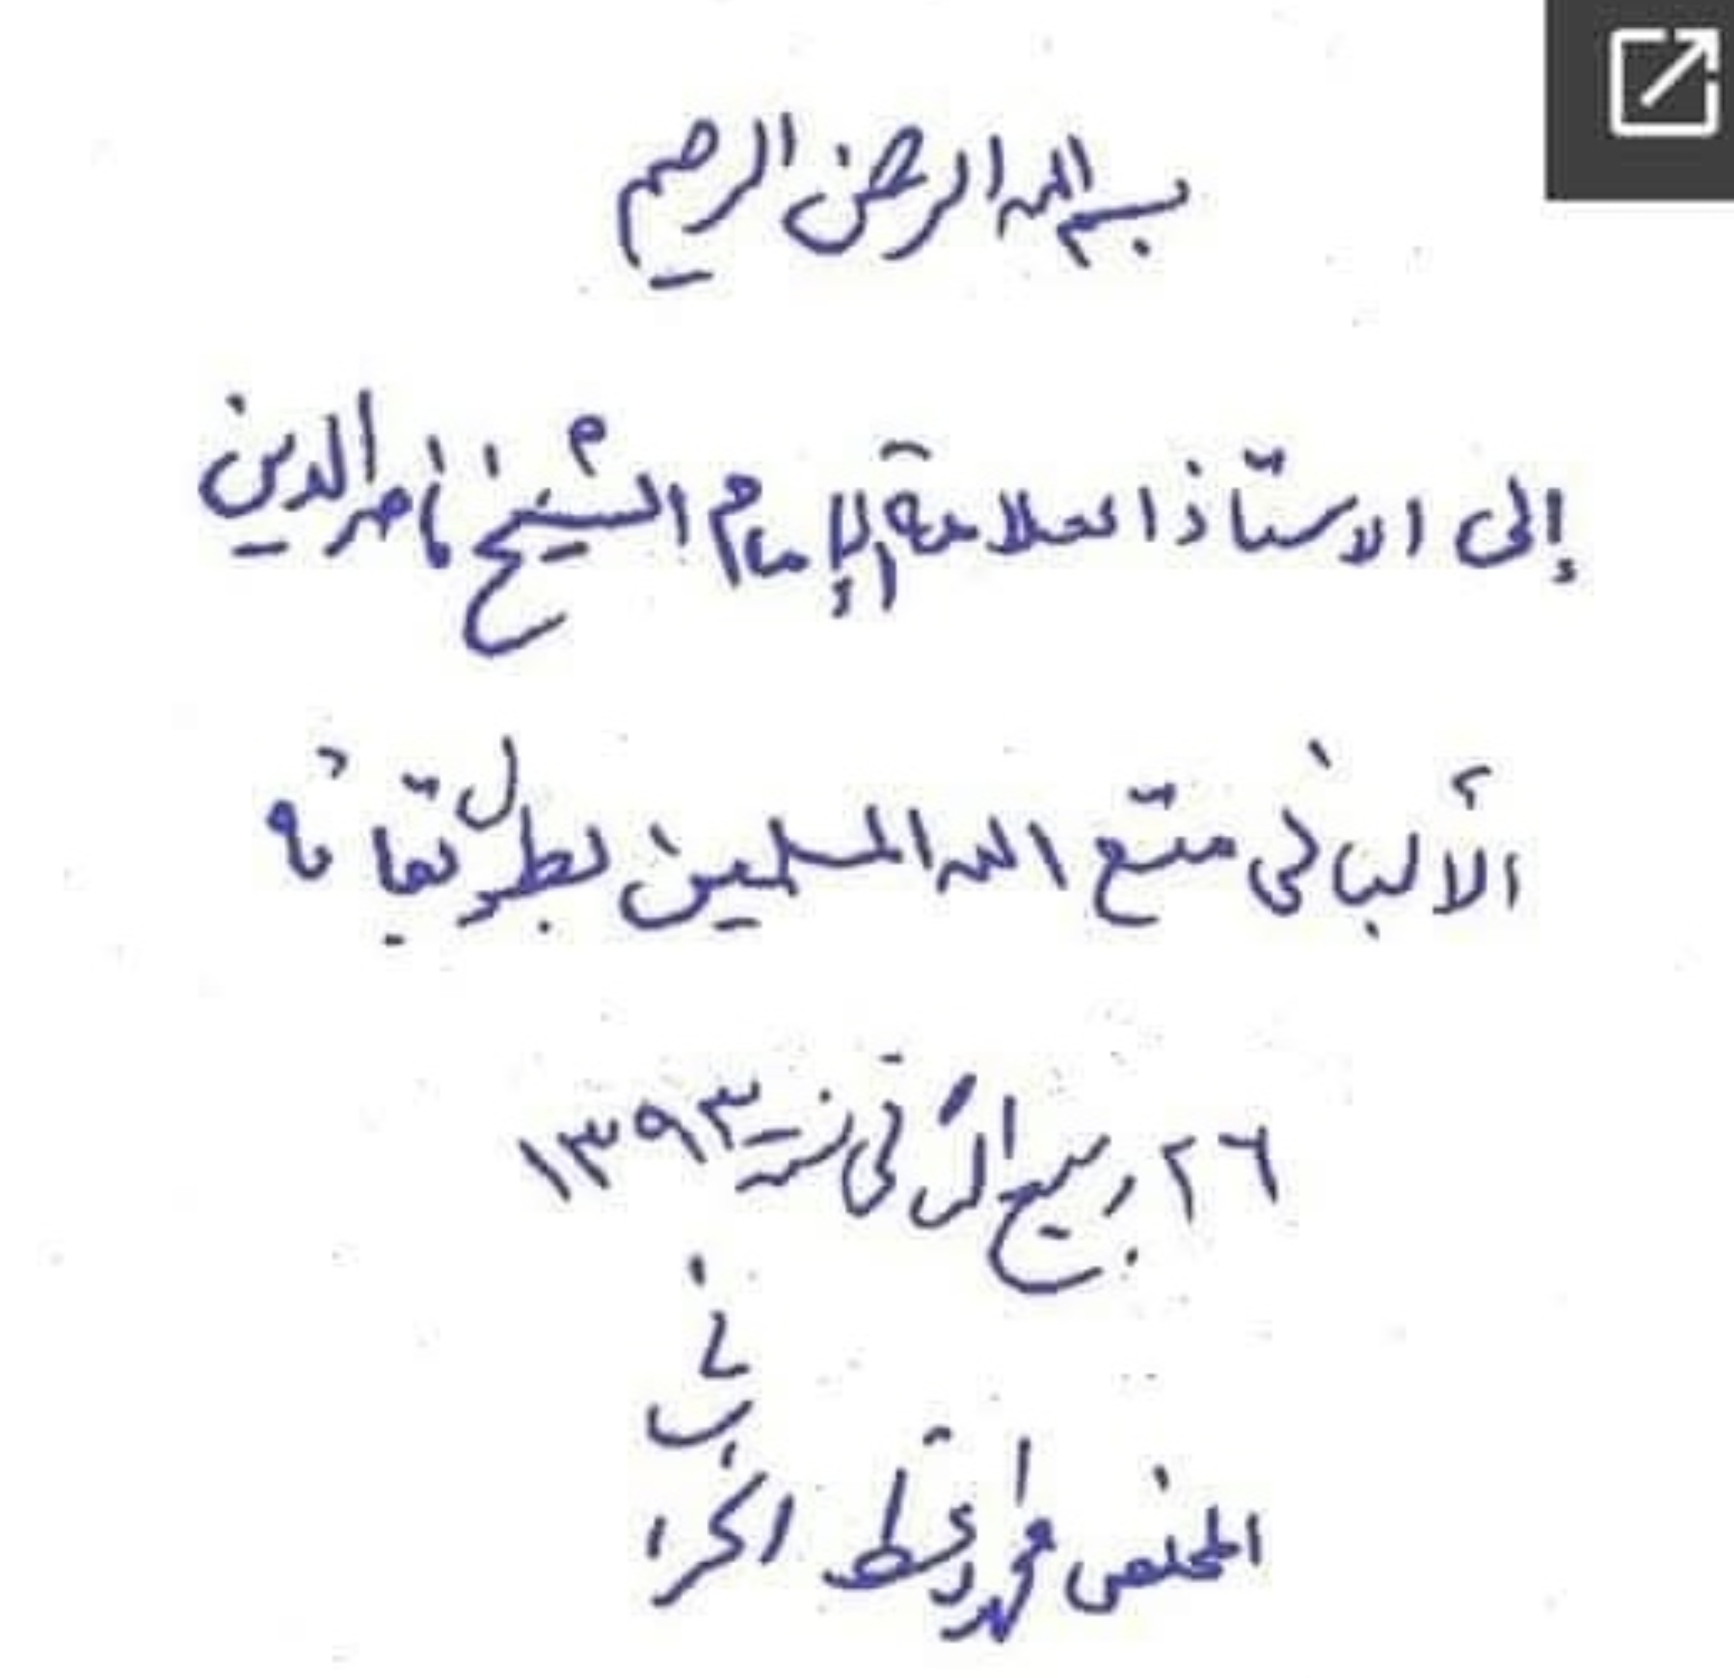 بسم الله الرحمن الرحيم
إلى الاستاذ العلامة الإمام الشيخ ناصر الدين
الألباني متّع الله المسلمين بطول بقائه
٢٦ ربيع الثاني ١٣٩٣
المخلص محمد